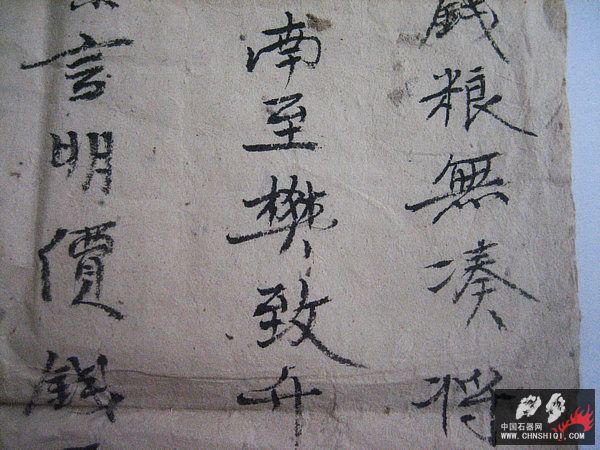 錢粮無凑将
南至樊致升
言明價錢
中国石器网
WWW.CHNSHIQI.COM